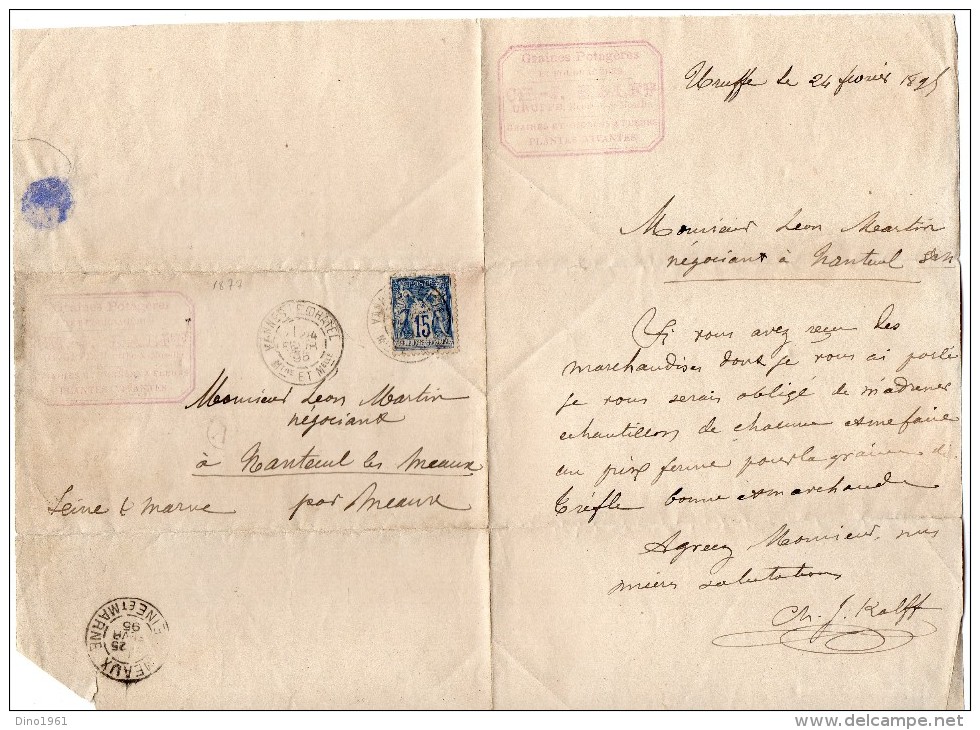 Graines Potagères
PLANTES VIVANTES
Uruffe le 24 fevrier 1895
Monsieur Leon Martin
négociant à Nanteuil
Si vous avez reçu les
marchandises dont je vous ai parlé
je vous serais obligé de m'adresser
echantillons de chacune et me faire
un prix ferme pour la graine de
Trèfle bonne et marchande
Agreez Monsieur, mes
salutations
Ch. J. Kalff
1877
Graines Potagères
PLANTES VIVANTES
VANNES-LE-CHATEL
95
MTHE ET MSLLE
15
Monsieur Leon Martin
négociant
à Nanteuil les Meaux
par Meaux
Seine & Marne
MEAUX
SEINE ET MARNE
25
95
Dino1961
www.delcampe.net